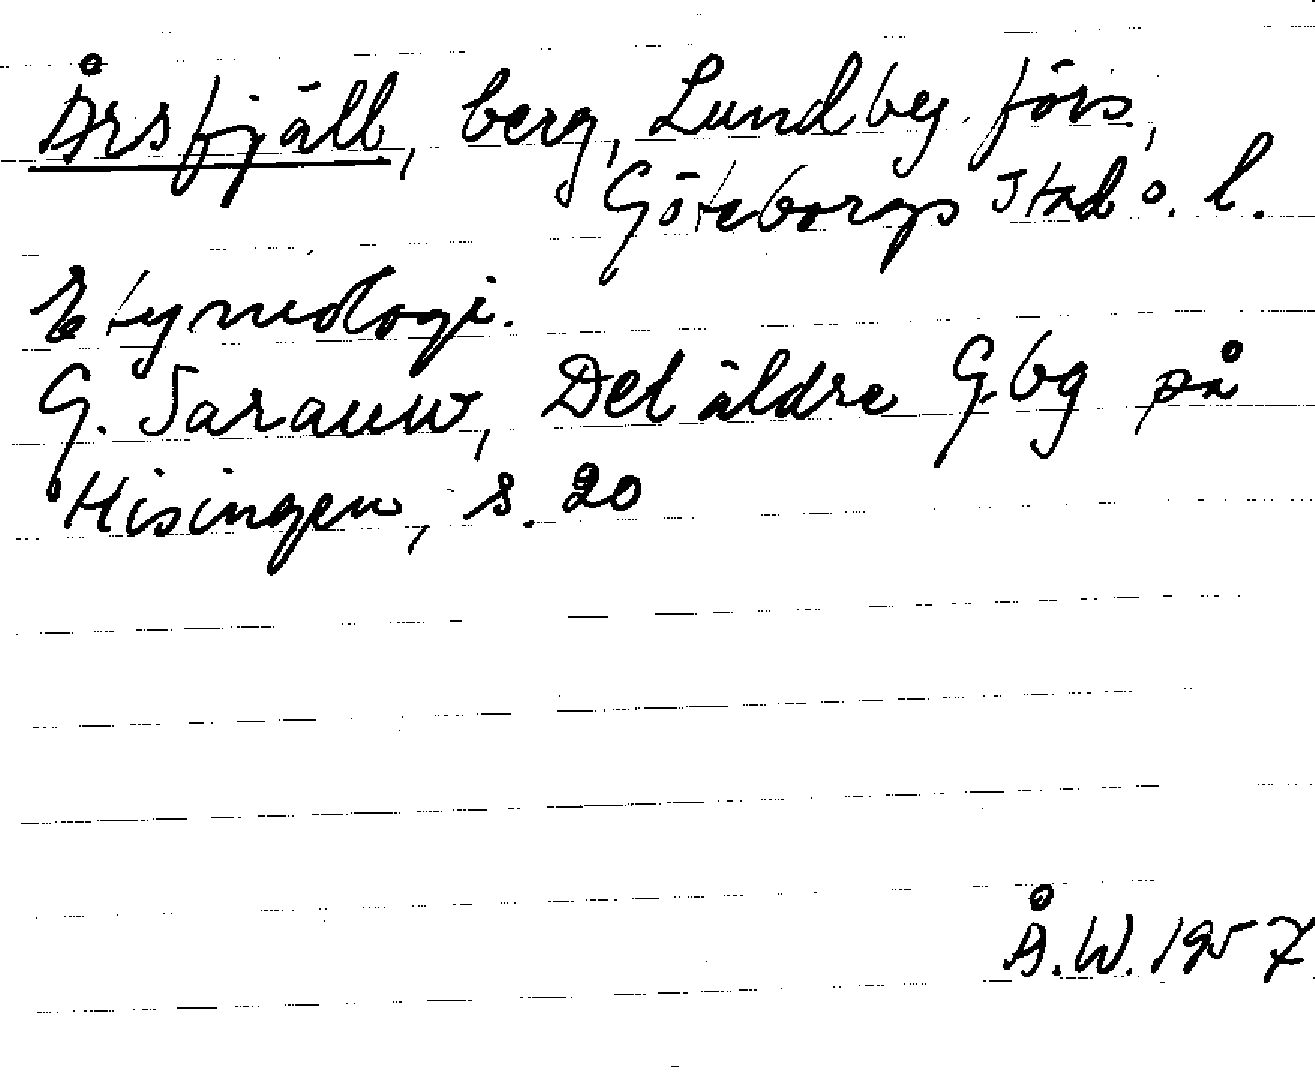 Årsfjäll, berg, Lundby förs.,
Göteborgs stad o. l.
Etymologi.
G. Sarauw, Det äldre G.bg på
Hisingen, s. 20
Å.W. 1957